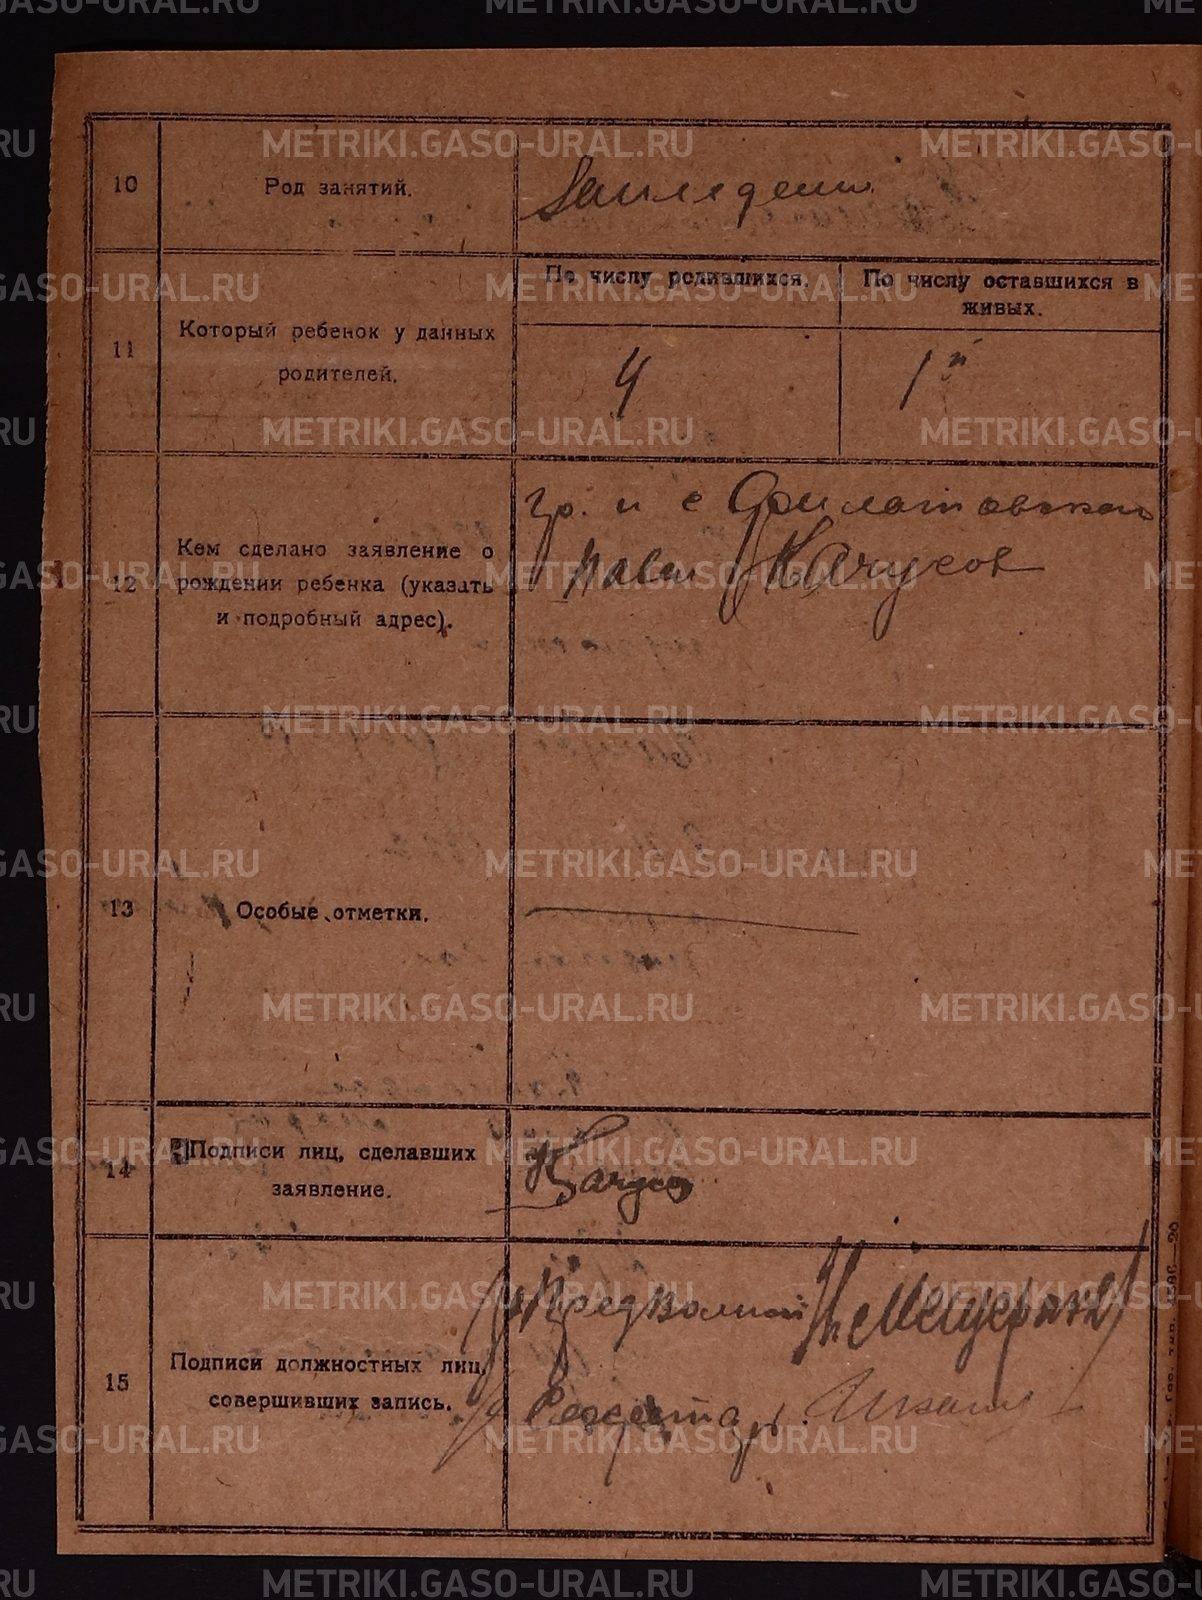 10
Род занятий.
Земледели
11
Который ребенок у данных
родителей.
По числу родившихся.
По числу оставшихся в
живых.
4
1й
12
Кем сделано заявление о
рождении ребенка (указать
и подробный адрес).
гр. и с Филатовского
Павел Качусов
13
Особые отметки.
14
Подписи лиц, сделавших
заявление.
Качусов
15
Подписи должностных лиц,
совершивших запись.
Предволисп
Мещеряков
Секретарь
METRIKI.GASO-URAL.RU